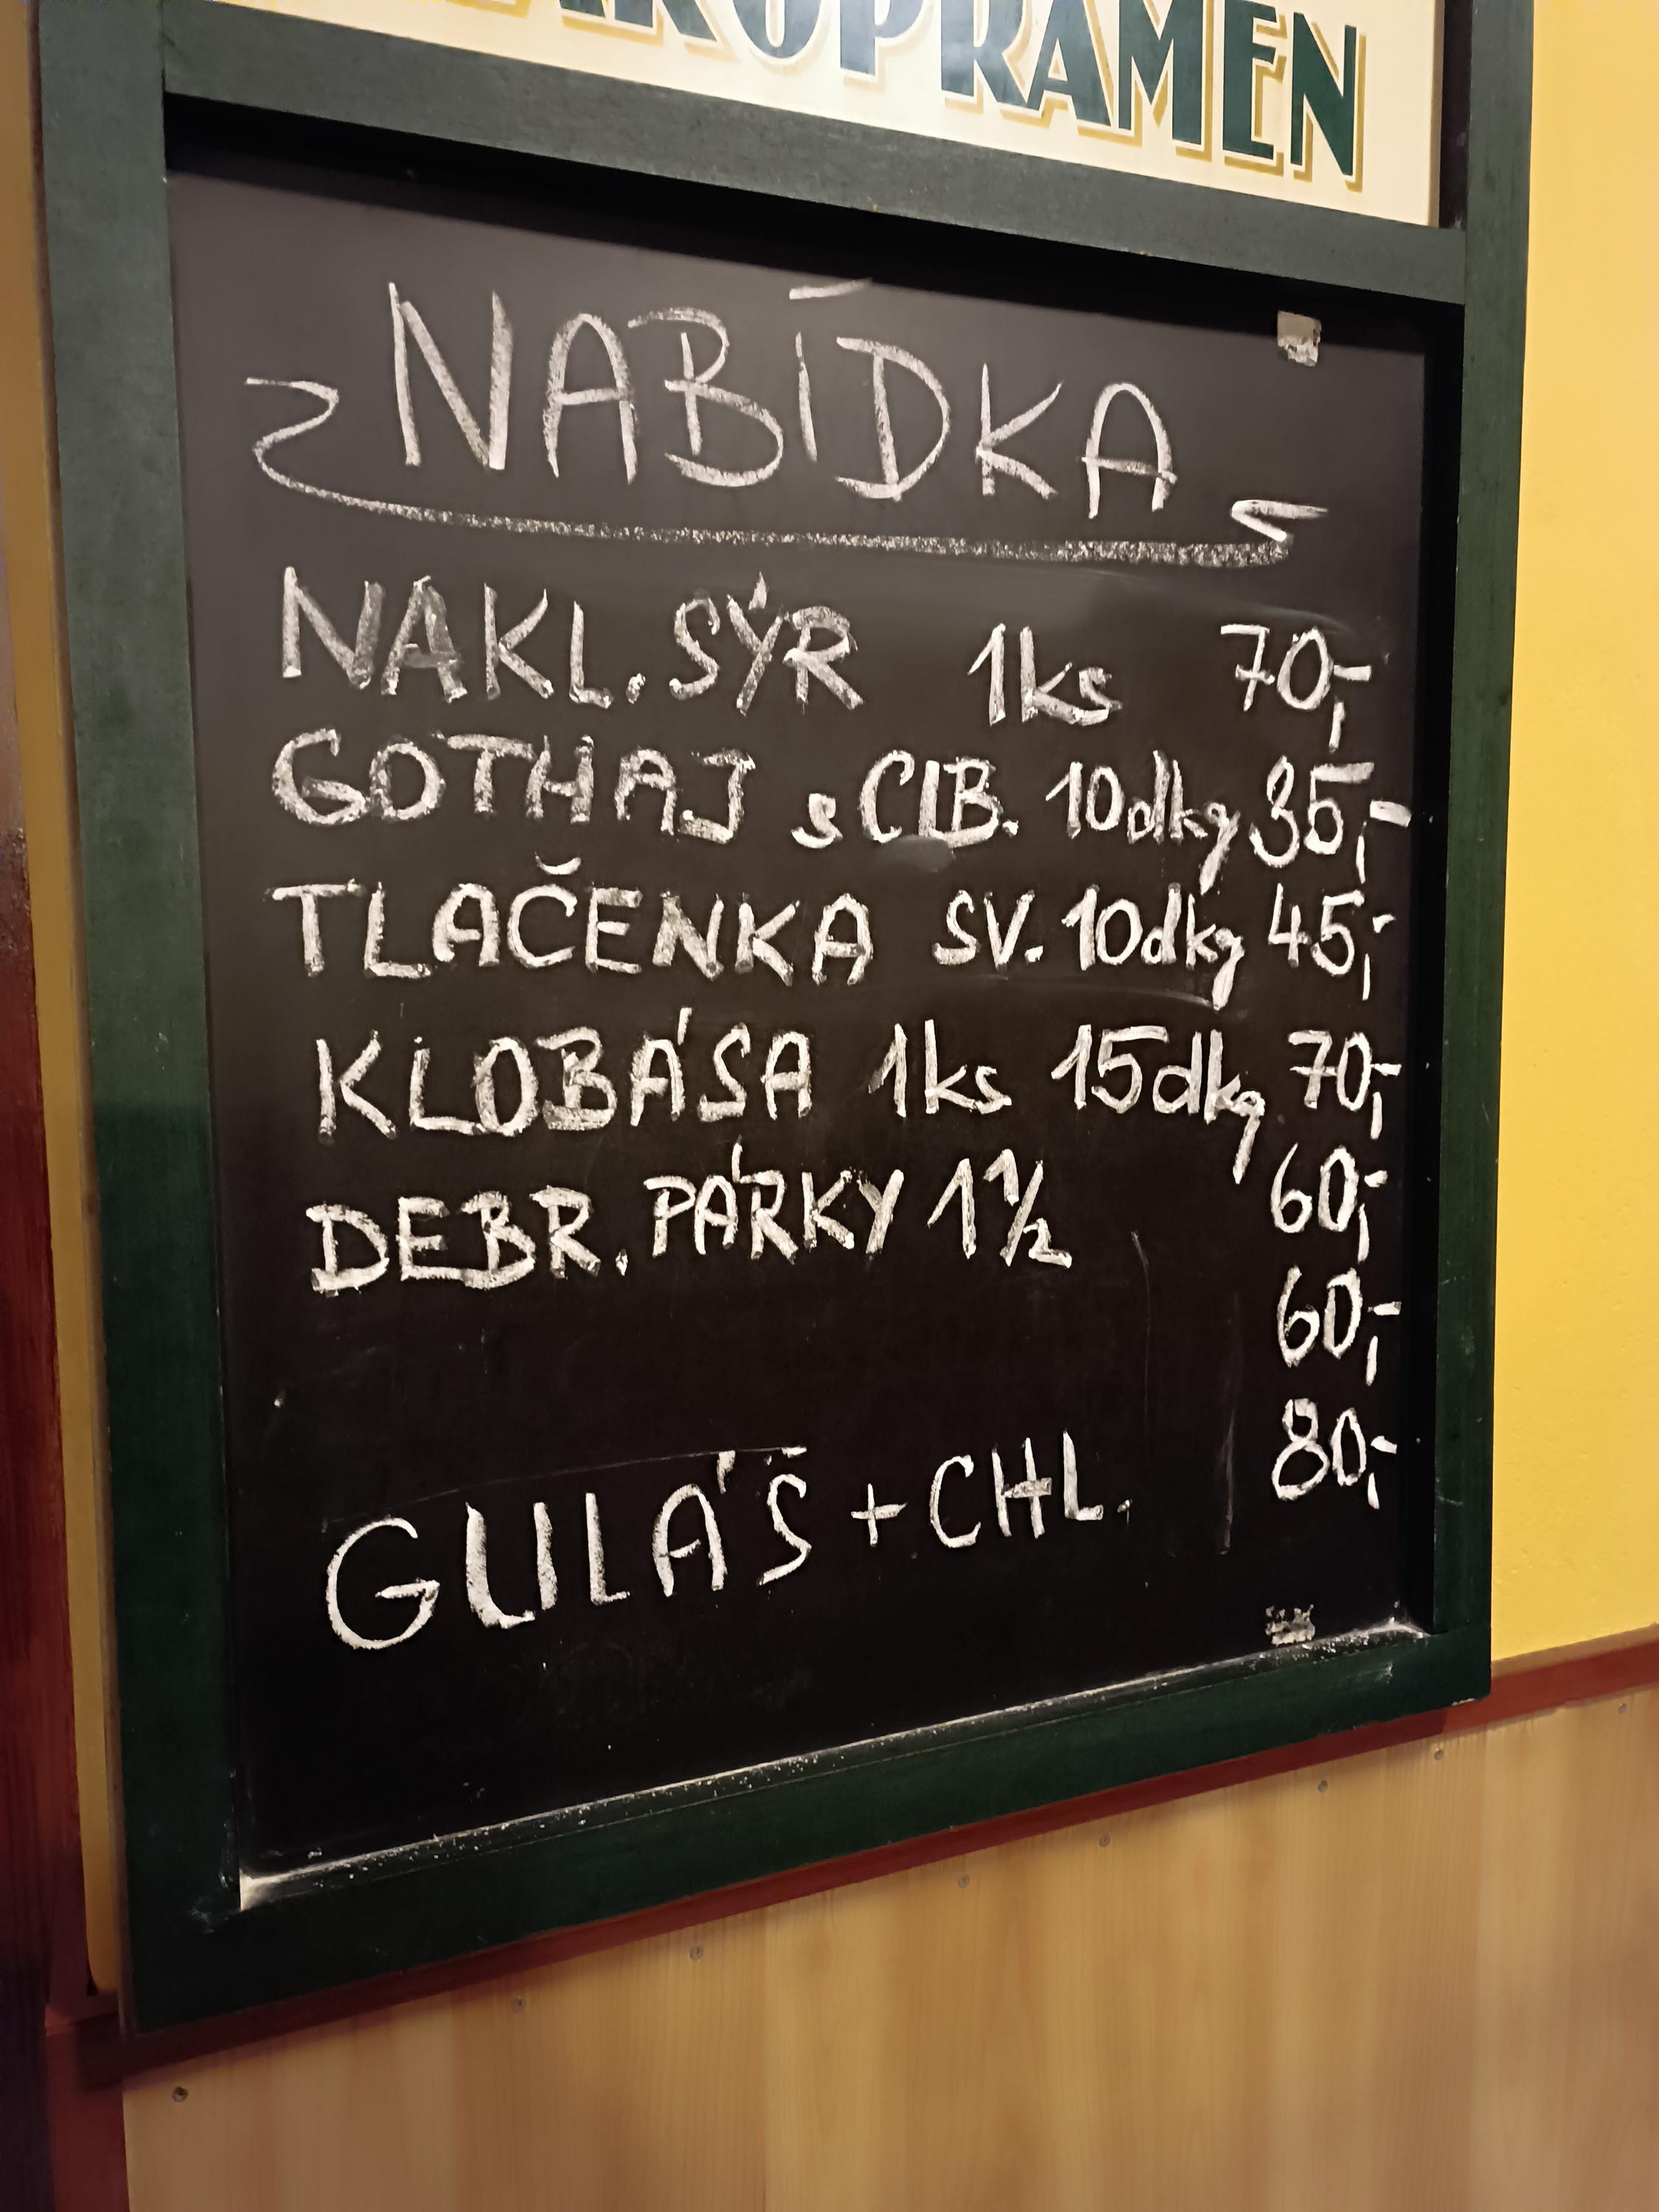 AROPRAMEN
NABÍDKA
NAKL. SÝR 1ks 70,-
GOTHAJ s CIB. 10dkg 35,-
TLAČENKA SV. 10dkg 45,-
KLOBÁSA 1ks 15dkg 70,-
DEBR. PÁRKY 1 1/2 60,-
60,-
80,-
GULÁŠ + CHL.